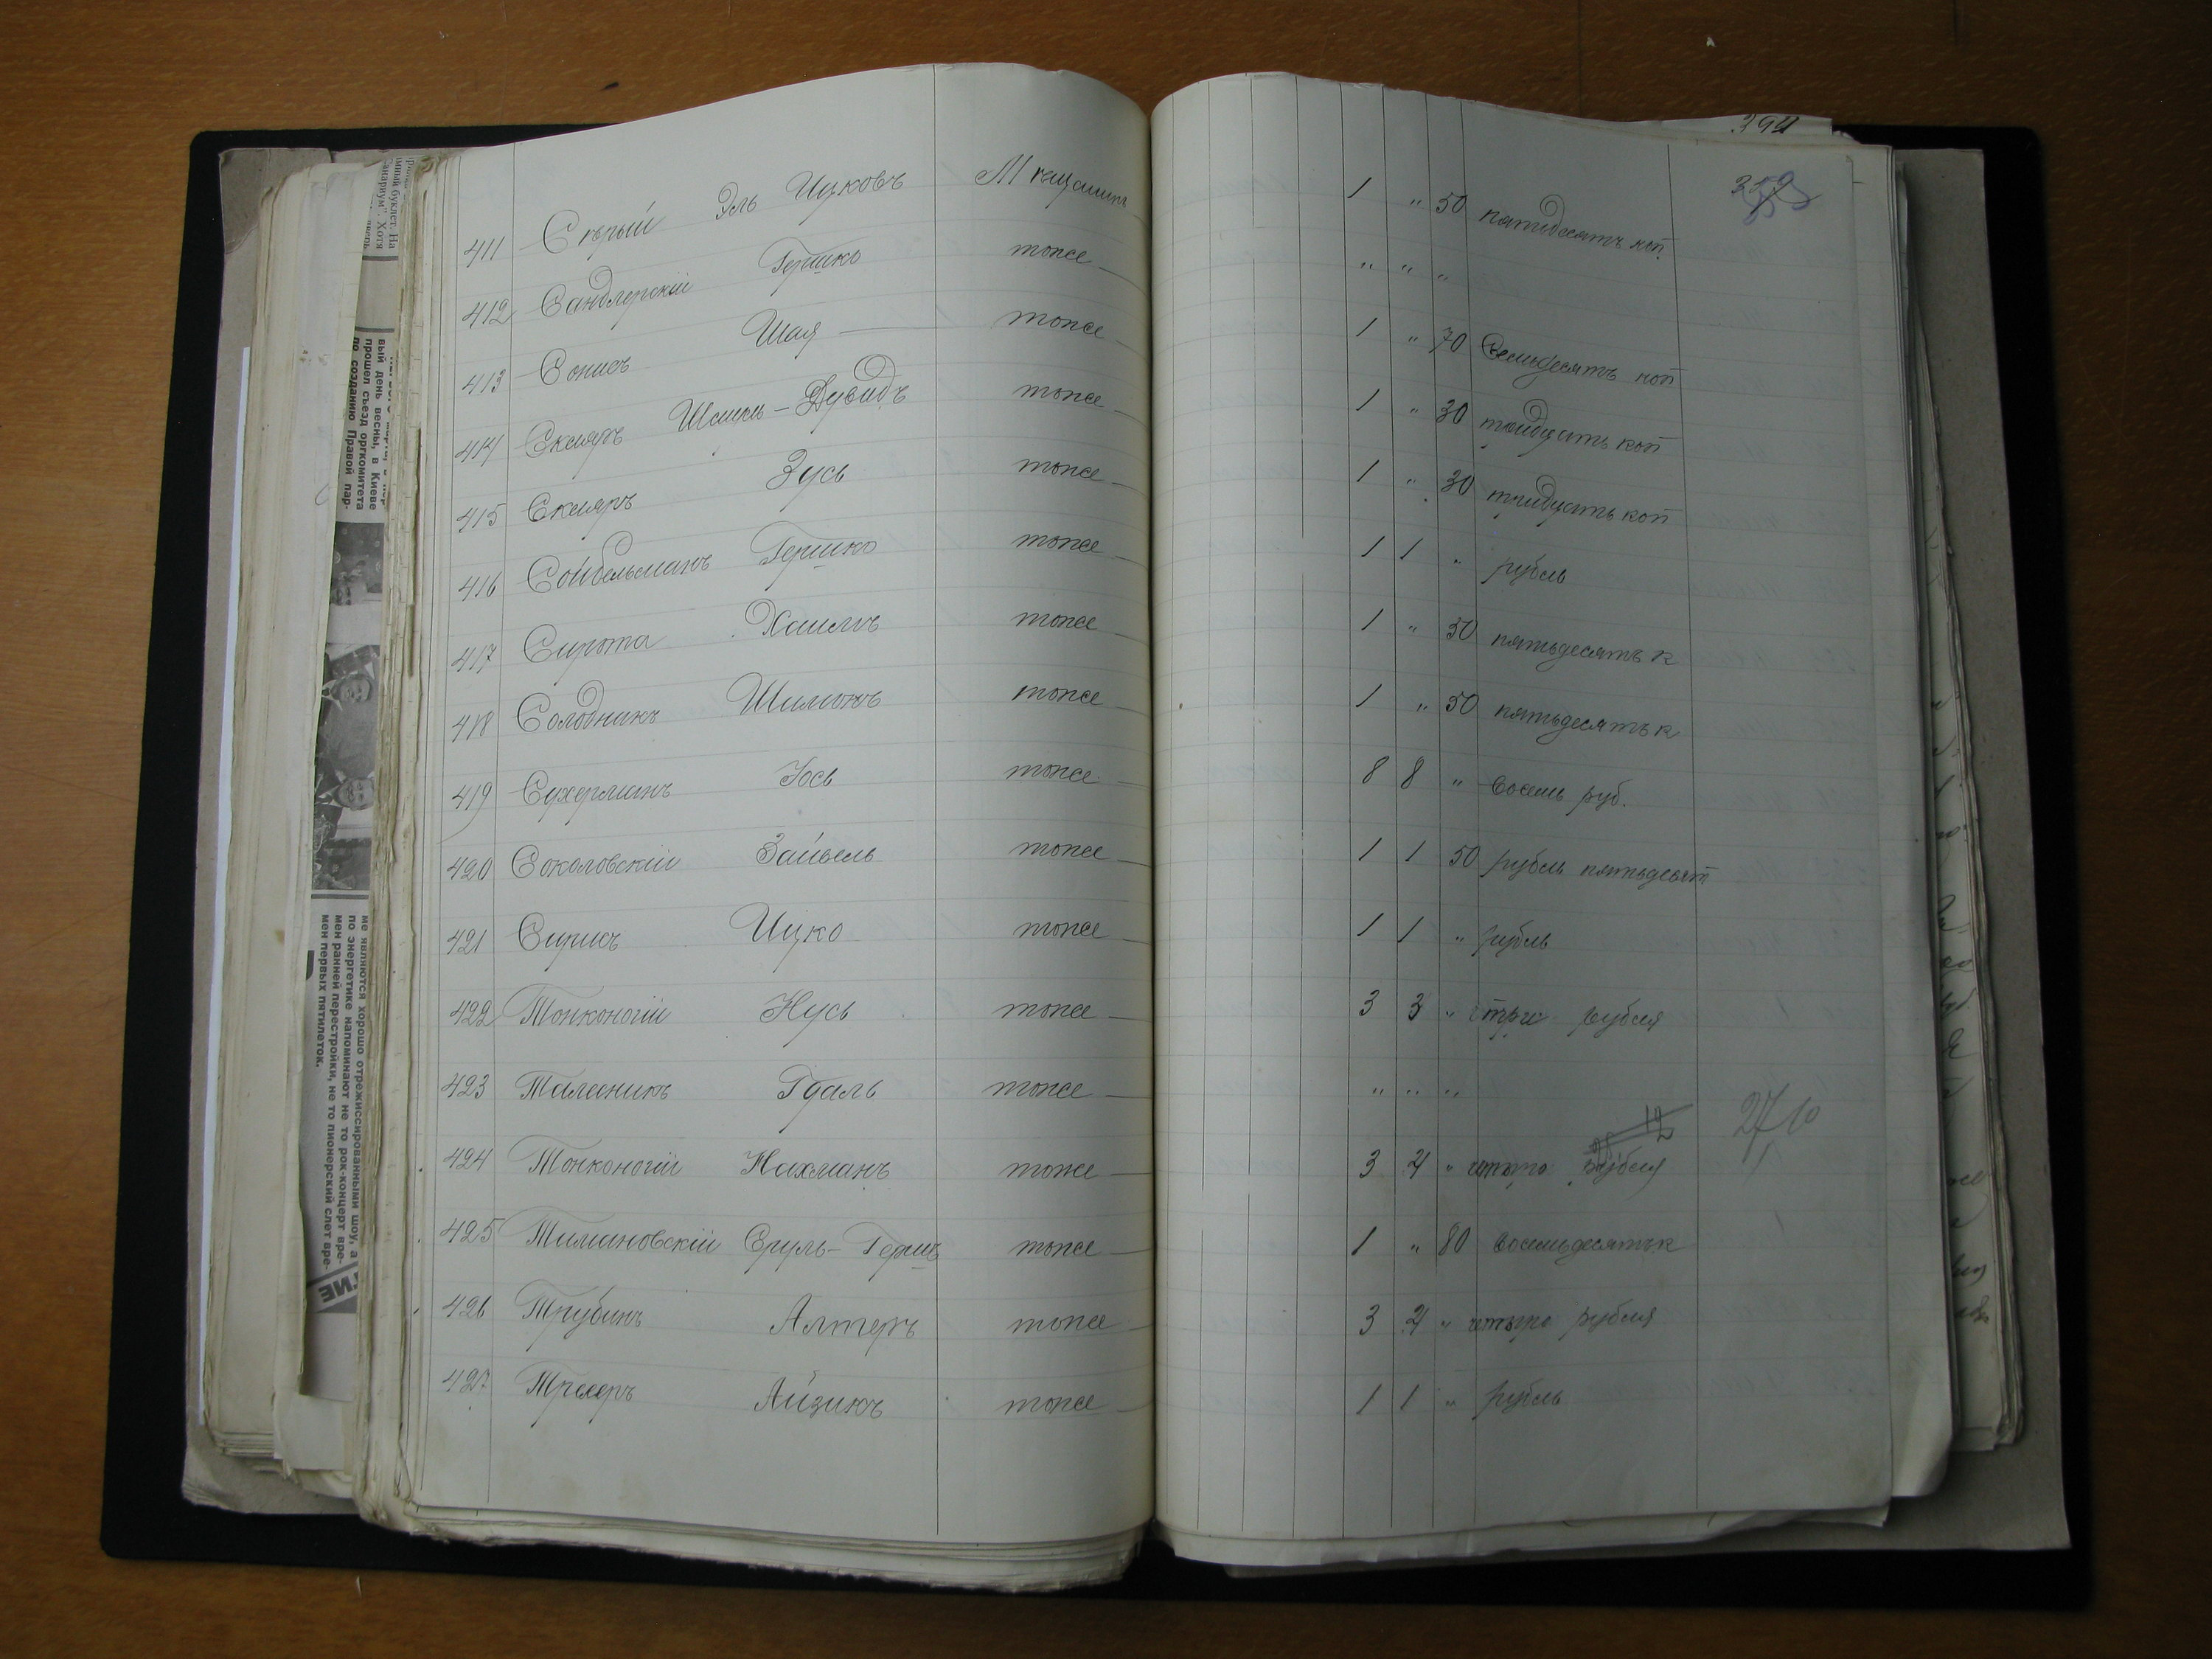 394
411 Серый Эль Ицковъ Мещанинъ 1 " 50 пятидесять коп
412 Сандлерскій Гершко тоже " " "
413 Сонисъ Шая тоже 1 " 70 Семьдесять коп
414 Скляръ Шмиль-Дувидъ тоже 1 " 30 тридцать коп
415 Скляръ Зусь тоже 1 " 30 тридцать коп
416 Сойбельманъ Гершко тоже 1 1 " рубль
417 Сирота Хаимъ тоже 1 " 50 пятьдесять к
418 Солодникъ Шимонъ тоже 1 " 50 пятьдесять к
419 Сухерманъ Іось тоже 8 8 " восемь руб.
420 Соколовскій Зайвель тоже 1 1 50 рубль пятьдесят
421 Сирисъ Ицко тоже 1 1 " рубль
422 Тонконогій Нусь тоже 3 3 " три рубля
423 Талесникъ Гдаль тоже " " "
27 10
424 Тонконогій Нахманъ тоже 3 4 " четыре рубля
425 Тимановскій Сруль-Гершъ тоже 1 " 80 восемьдесять к
426 Трубикъ Алтеръ тоже 3 4 " четыре рубля
427 Айзикъ тоже 1 1 " рубль
ме являются хорошо отрежиссированными шоу, а
по энергетике напоминают не то рок-концерт вре-
мен ранней перестройки, не то пионерский слет вре-
мен первых пятилеток.
вый день весны, в Киеве
прошел съезд оргкомитета
по созданию Правой пар-